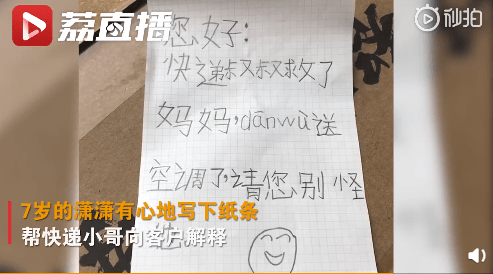 荔直播
秒拍
您好:
快递叔叔救了
妈妈,dānwù送
空调了,请您别怪
他
7岁的潇潇有心地写下纸条
帮快递小哥向客户解释